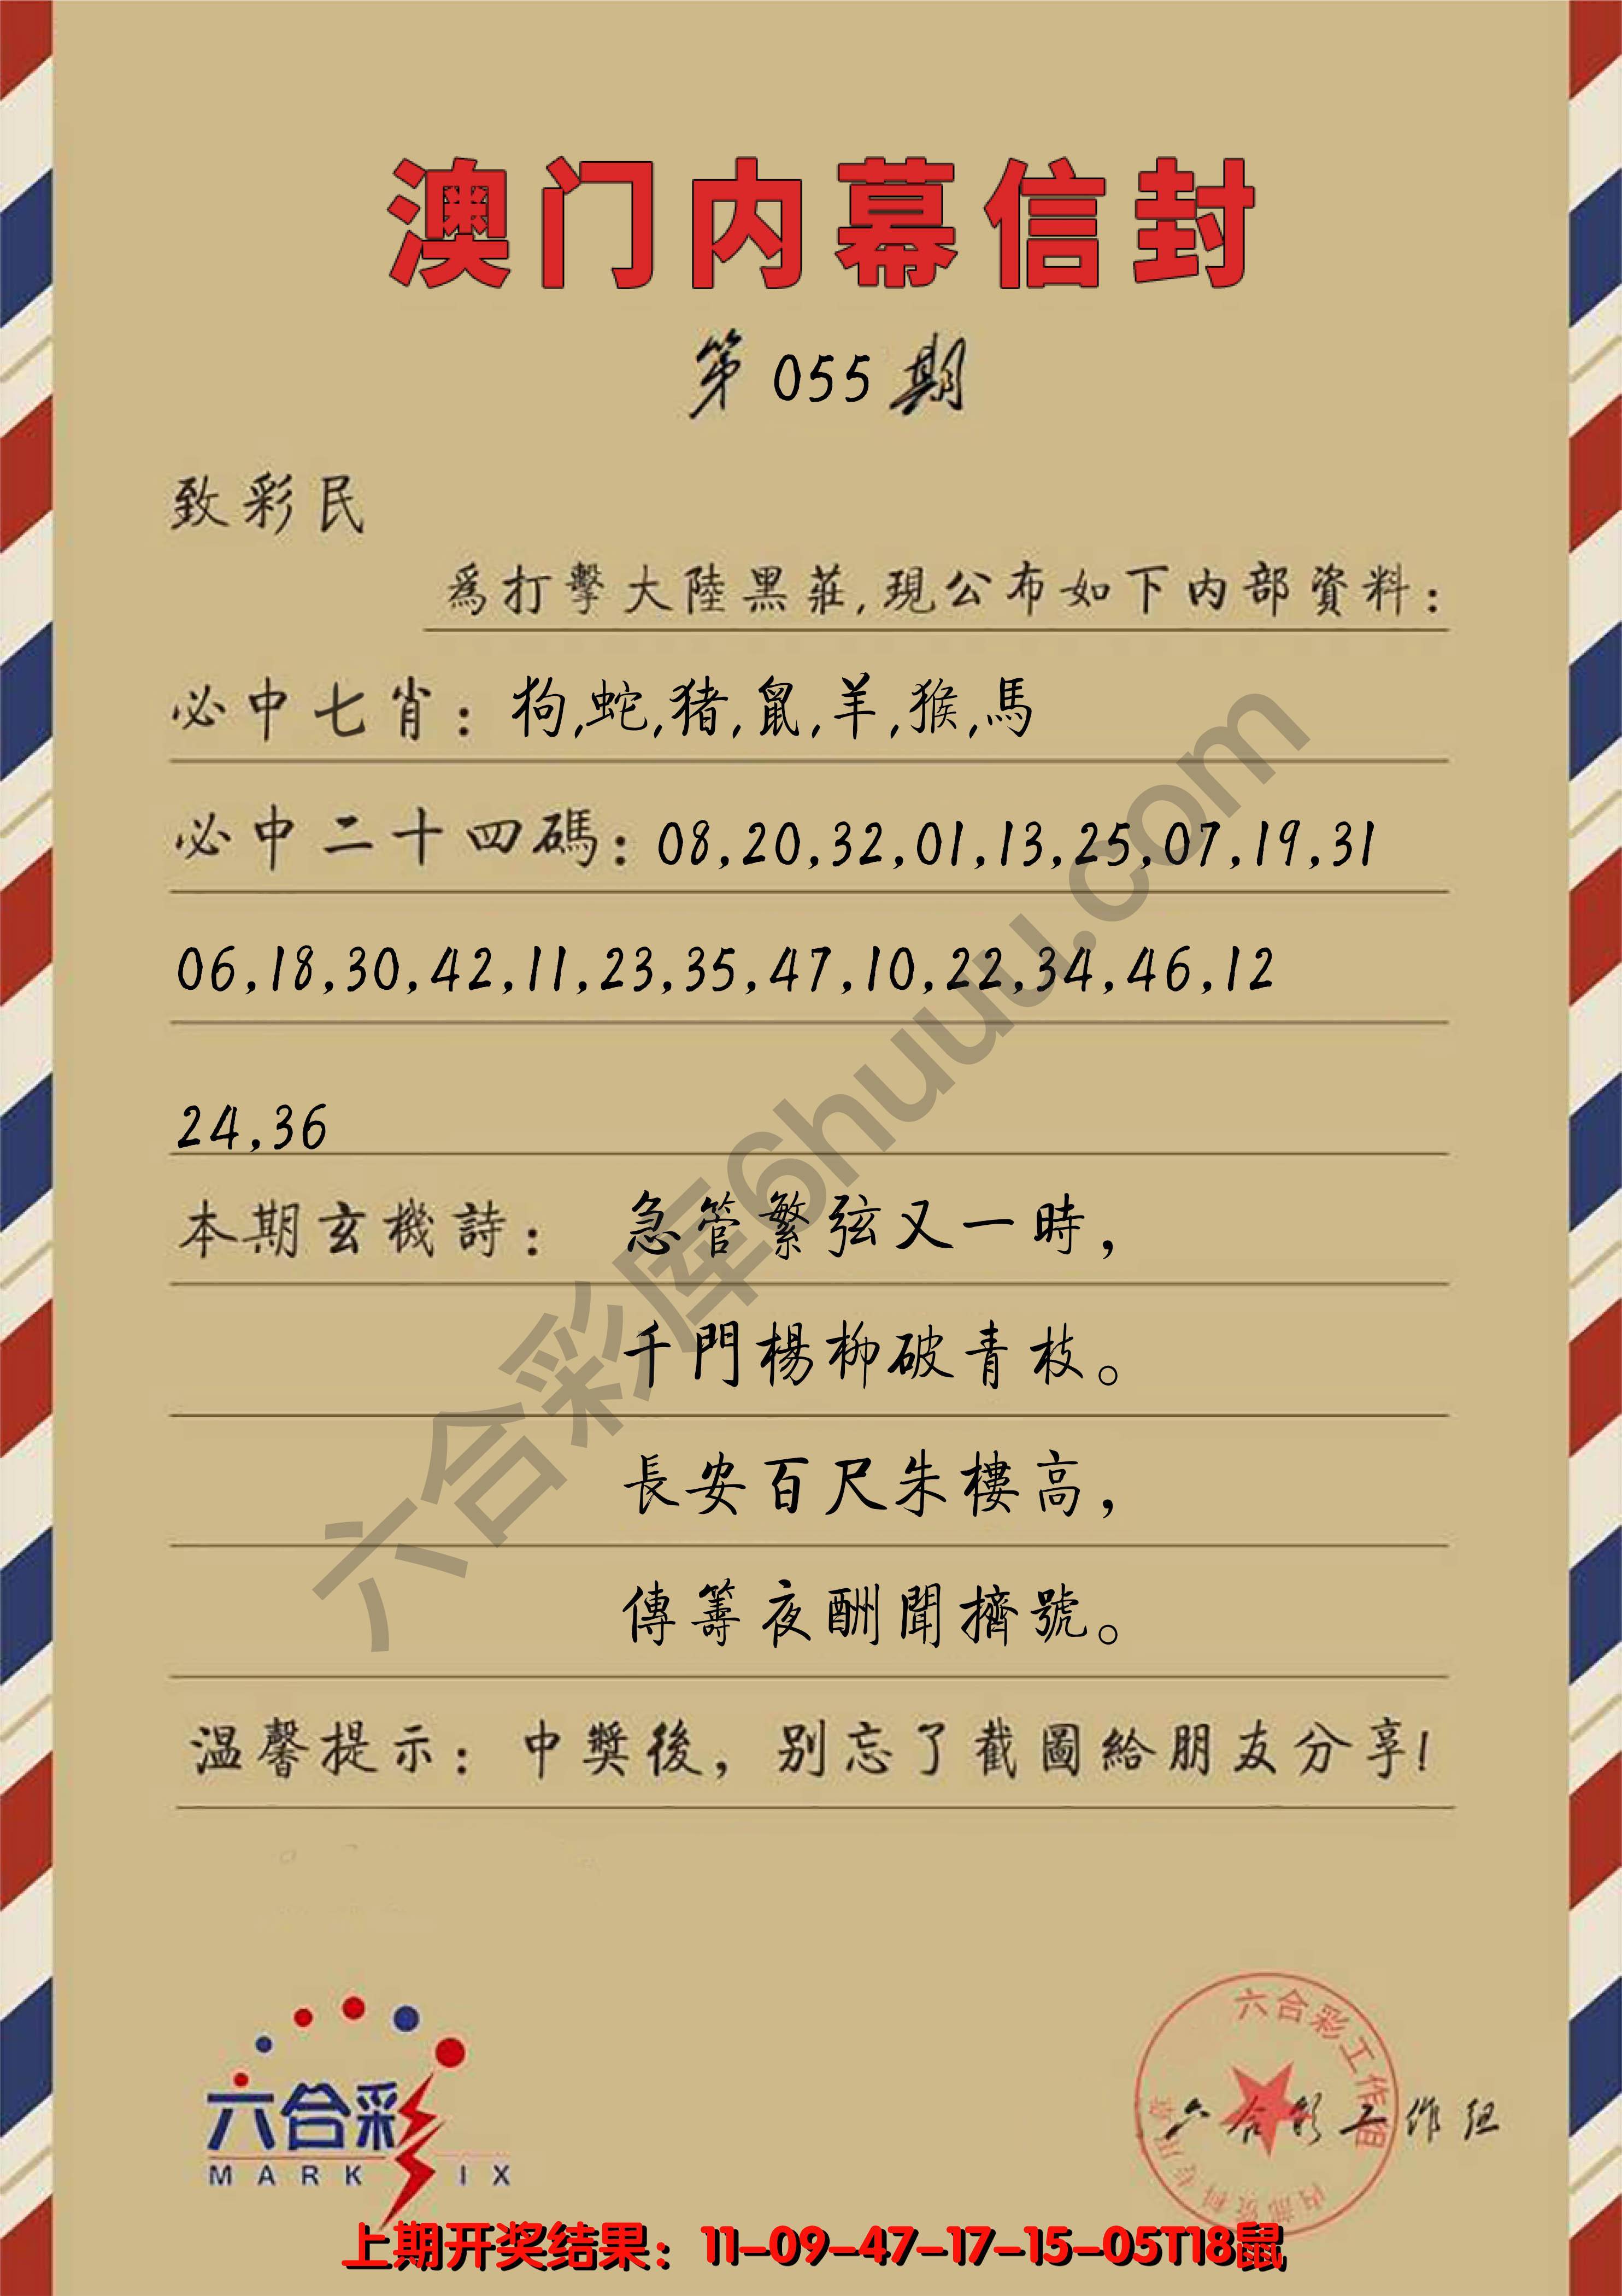 澳门内幕信封
第 055 期
致彩民
爲打擊大陸黑莊,現公布如下内部資料:
必中七肖: 狗,蛇,猪,鼠,羊,猴,馬
必中二十四碼: 08,20,32,01,13,25,07,19,31
06,18,30,42,11,23,35,47,10,22,34,46,12
24,36
本期玄機詩: 急管繁弦又一時,
千門楊柳破青枝。
長安百尺朱樓高,
傳籌夜酬聞擠號。
温馨提示: 中獎後, 别忘了截圖給朋友分享!
六合彩库6huuu.com
六合彩
MARK IX
六合彩工作组
内部资料专用章
六合彩工作组
上期开奖结果: 11-09-47-17-15-05T18鼠